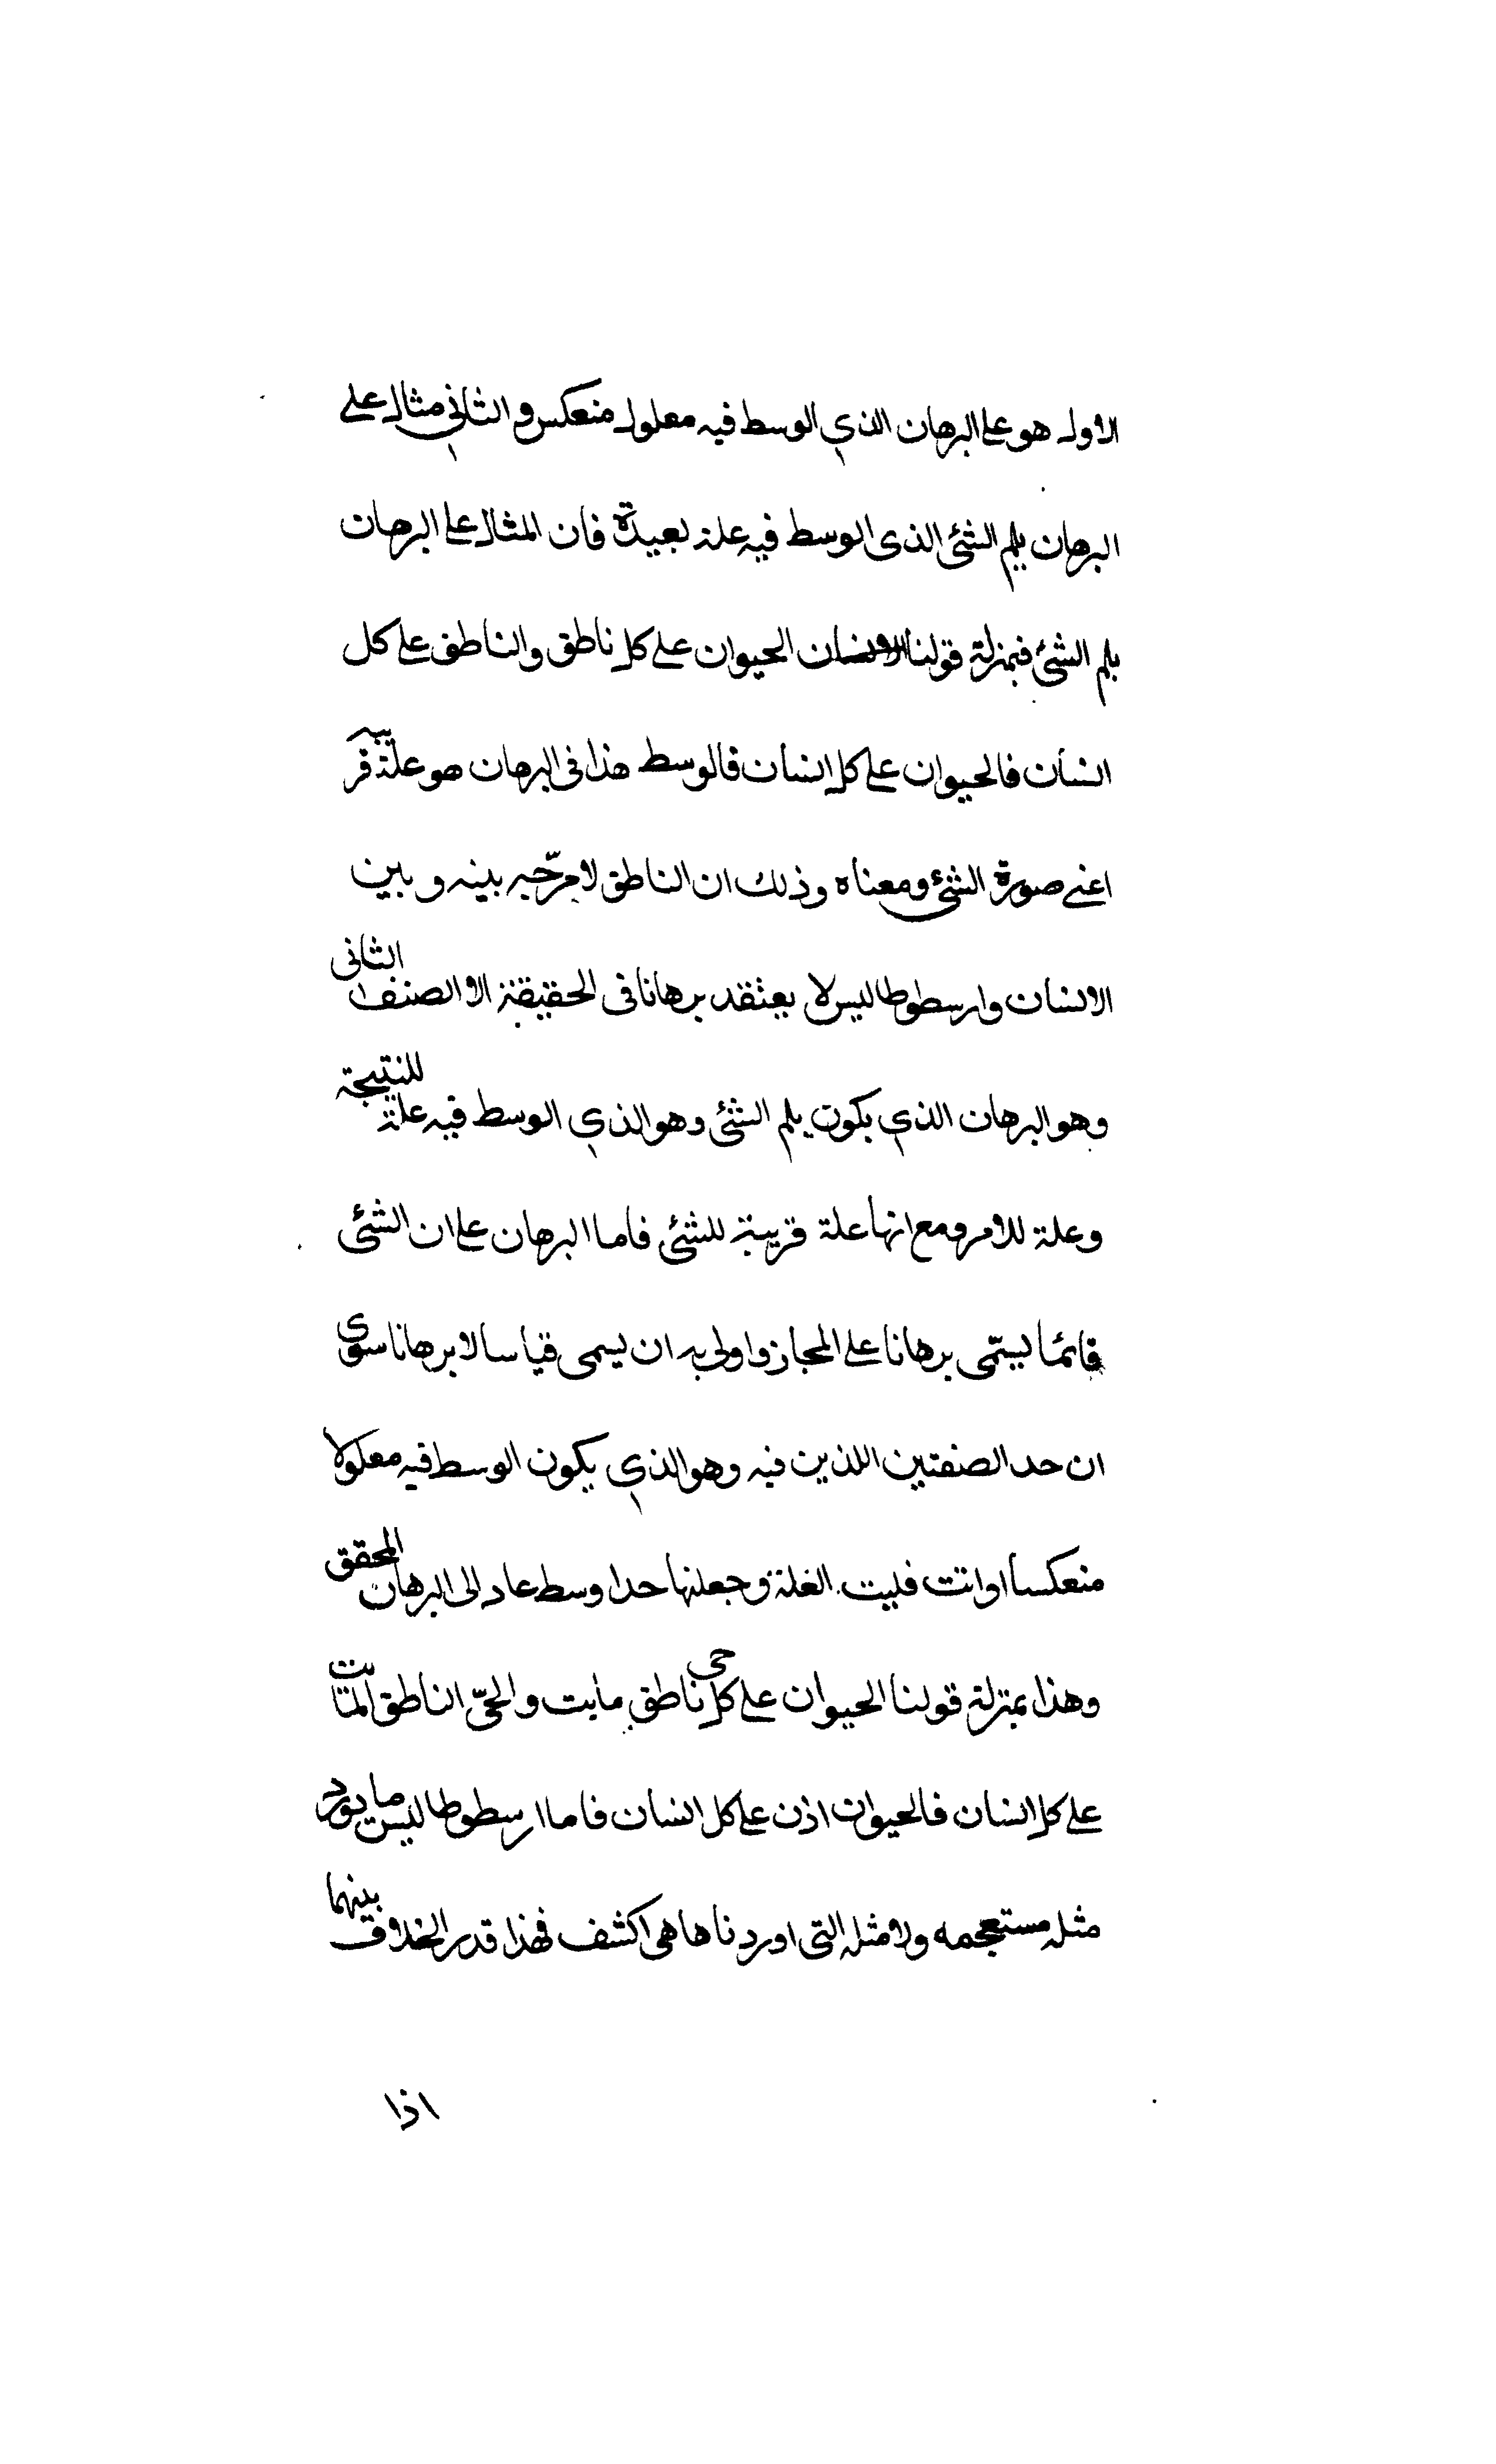 الاول هو على البرهان الذي الوسط فيه معلول منعكس والثاني مثال على
البرهان بلم الشئ الذى الوسط فيه علة بعيدة فان المثال على البرهان
بلم الشئ فبمنزلة قولنا الحيوان على كل ناطق والناطق على كل
انسان فالحيوان على كل انسان فالوسط هذا فى البرهان هو علة قريبه
اعنى صورة الشئ ومعناه وذلك ان الناطق لا بينه وبين
الانسان وارسطوطاليس لا يعتقد برهانا فى الحقيقة الا الصنف الثانى
وهو البرهان الذي يكون بلم الشئ وهو الذي الوسط فيه علة للنتيجة
وعلة للامر ومع انها علة قريبة للشئ فاما البرهان على ان الشئ
فانما يسمّى برهانا على المجاز واولى به ان يسمى قياسا لا برهانا سوى
ان حد الصنفتين اللذين فيه وهو الذي يكون الوسط فيه معلولا
منعكسا اوانت فلبت الغلة وجعلتها حدا وسط عاد الى البرهان المحقق
وهذا بمنزلة قولنا الحيوان على كل حى ناطق مايت والحىّ الناطق المائت
على كل انسان فالحيوان اذن على كل انسان فاما ارسطوطاليس ما يورد
مثله مستعجمه والامثله التى اوردناها هى اكشف فهذا قدر الخلاف بينهما
اذا